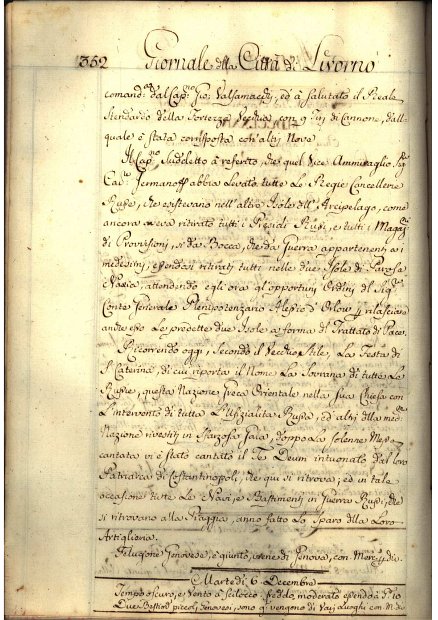 352 Giornale della Città di Livorno
comand.to dal Cap.no Gio. Valsamachj, ed à salutato il Reale
Stendardo della Fortezza Vecchia con 9 Tiri di Cannone, dall-
quale è stata corrisposta con altri Nove
Il Cap.no Sudetto à referito, che quel Vice Ammiraglio Sig.
Cav. Jermanoff abbia Levato tutte Le Regie Cancellerie
Russe, che esistevano nell'altre Isole dell'Arcipelago, come
ancora aveva ritirato tutti i Presidi Russi, e tutti i Magaz.i
di Provisioni, sì da Bocca, che da Guerra appartenenti ai
medesimi, essendosi ritirati tutti nelle due Isole di Paros, e
Naxia, attendendo egli ora gl'opportuni Ordini del Sig.
Conte Generale Plenipotenziario Alessio d'Orlow
anche esso Le predette due Isole a forma di Trattato di Pace.
Ricorrendo oggi, secondo il Vecchio Stile, La Festa di
S. Caterina, di cui riporta il Nome La Sovrana di tutte Le
Russie, questa Nazione Greca Orientale nella sua Chiesa con
L'intervento di tutta L'Ufizialità Russa, ed altri della med.
Nazione rivestiti in Sfarzosa Gala, doppo La Solenne Messa
cantata vi è stato cantato il Te Deum intuonato dal loro
Patriarca di Costantinopoli, che qui si ritrova; ed in tale
occasione tutte Le Navi, e Bastimenti in Guerra Russi, che
si ritrovano alla Spiaggia, anno fatto Lo Sparo della Loro
Artiglieria.
Felucone Genovese è giunto, viene di Genova, con Merc. e die.
Martedì 6 Decembre
Tempo oscuro, e Vento a Scilocco freddo moderato essendo a
Due Bastim.ti piccoli Genovesi, sono q. vengono di Varj Luoghi con